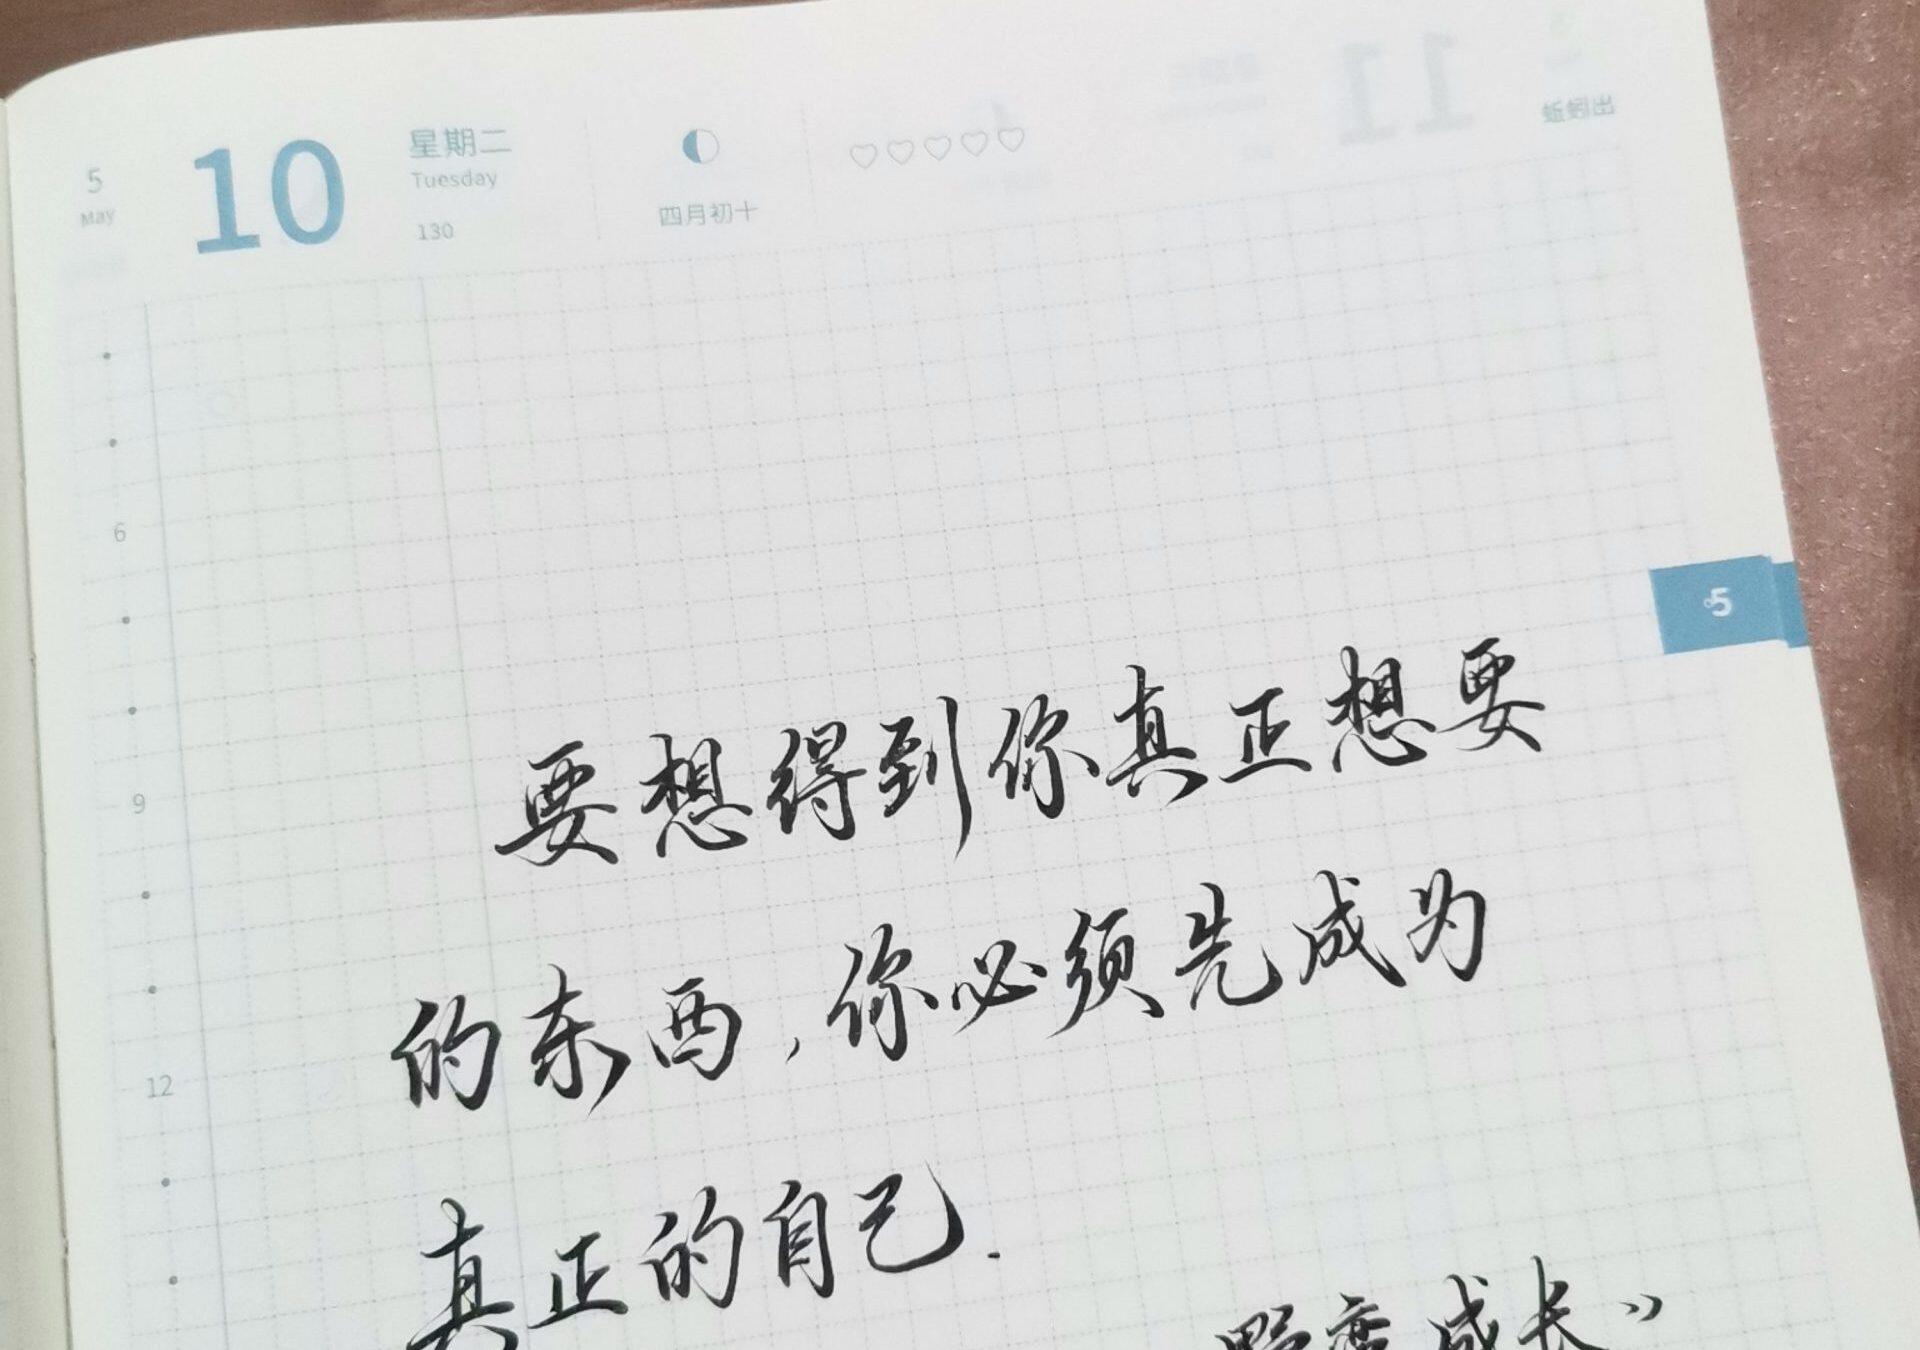 5
May
10
星期二
Tuesday
130
四月初十
蚯蚓出
6
9
12
5
要想得到你真正想要
的东西,你必须先成为
真正的自己.
野蛮成长》